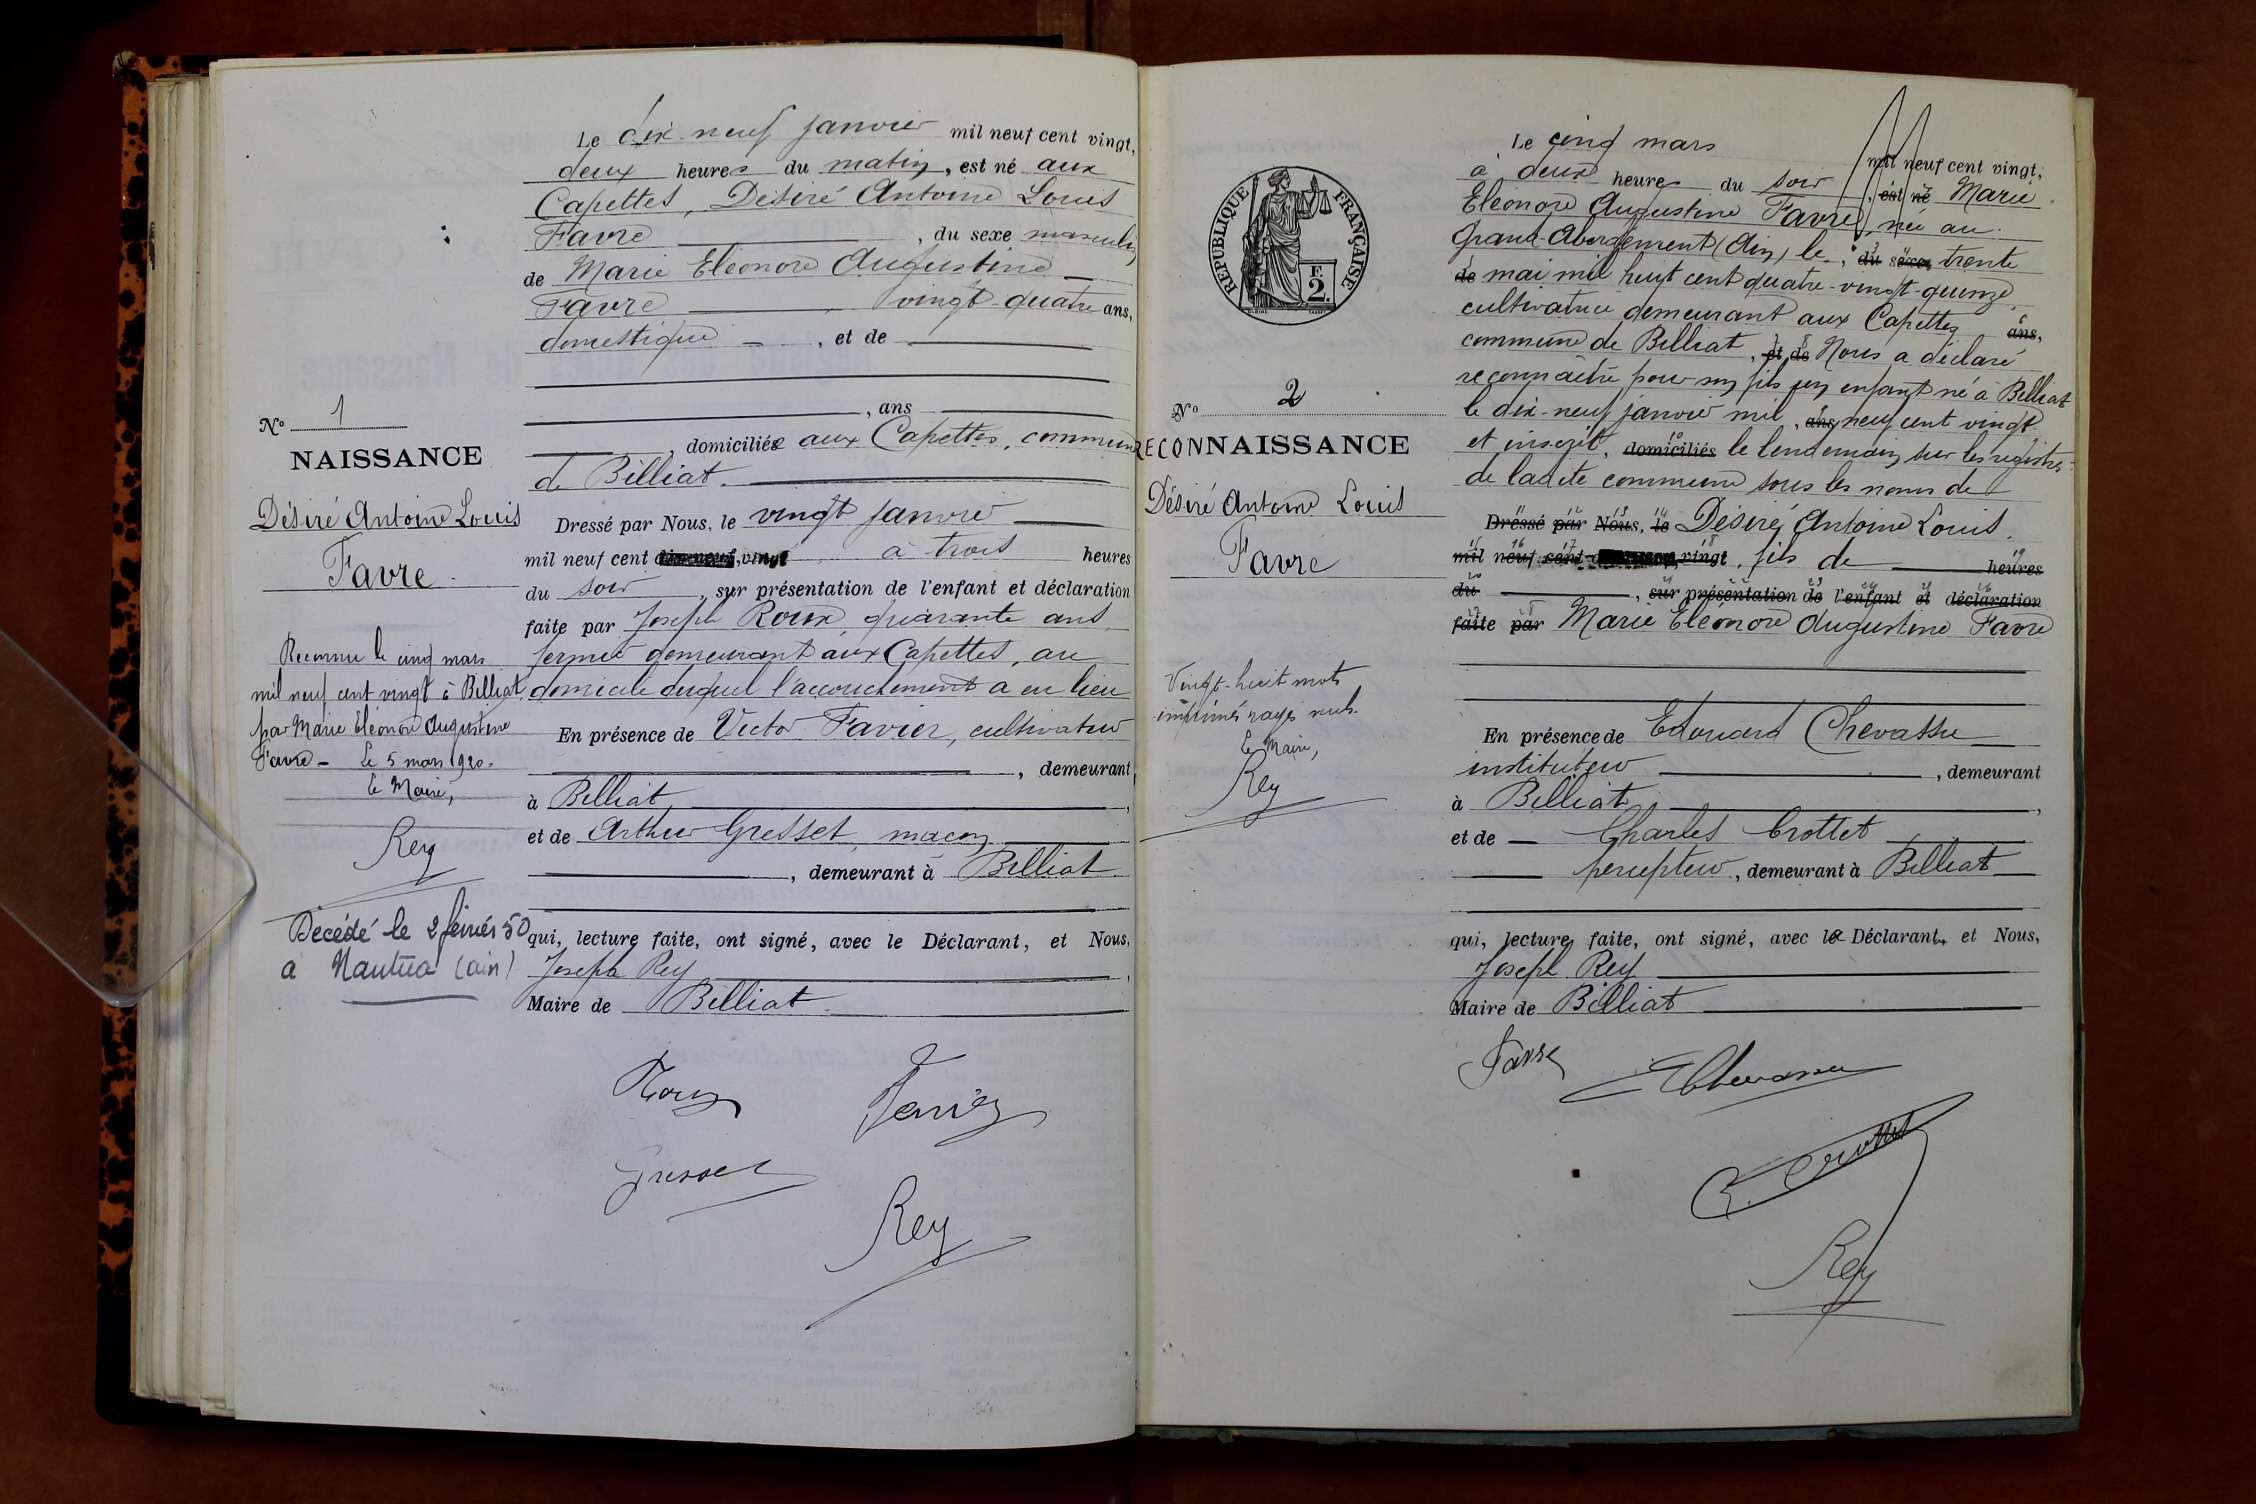 Le dix-neuf janvier mil neuf cent vingt,
deux heures du matin, est né aux
Capettes, Désiré Antoine Louis
Favre, du sexe masculin
de Marie Eléonore Augustine
Favre, vingt-quatre ans,
domestique, et de
, ans
, domiciliée aux Capettes, commune
de Billiat.
Dressé par Nous, le vingt janvier
mil neuf cent vingt à trois heures
du soir, sur présentation de l'enfant et déclaration
faite par Joseph Roux, quarante ans,
fermier demeurant aux Capettes, au
domicile duquel l'accouchement a eu lieu
En présence de Victor Favier, cultivateur
, demeurant
à Billiat,
et de Arthur Gresset, maçon
, demeurant à Billiat
qui, lecture faite, ont signé, avec le Déclarant, et Nous,
Joseph Rey,
Maire de Billiat
Roux
Favier
Gresset
Rey
No 1
NAISSANCE
Désiré Antoine Louis
Favre
Reconnu le cinq mars
mil neuf cent vingt à Billiat
par Marie Eléonore Augustine
Favre - Le 5 mars 1920.
Le Maire,
Rey
Décédé le 2 février 50
à Nantua (ain)
RÉPUBLIQUE FRANÇAISE
F.
2.
No 2
RECONNAISSANCE
Désiré Antoine Louis
Favre
Vingt-huit mots
imprimés rayés nuls.
Le Maire,
Rey
Le cinq mars mil neuf cent vingt,
à deux heures du soir, est né Marie
Eléonore Augustine Favre, née au
Grand-Abergement (Ain) le, du sexe trente
de mai mil huit cent quatre-vingt-quinze,
cultivatrice demeurant aux Capettes ans,
commune de Billiat, et de Nous a déclaré
reconnaître pour son fils un enfant né à Billiat
le dix-neuf janvier mil, ans neuf cent vingt
et inscrit, domiciliés le lendemain sur les registres
de ladite commune sous les noms de
Dressé par Nous, le Désiré Antoine Louis,
mil neuf cent vingt, fils de heures
du, sur présentation de l'enfant et déclaration
faite par Marie Eléonore Augustine Favre
En présence de Edouard Chevassu
instituteur, demeurant
à Billiat,
et de Charles Crottet
percepteur, demeurant à Billiat
qui, lecture faite, ont signé, avec la Déclarante, et Nous,
Joseph Rey
Maire de Billiat
Favre
EChevassu
C. Crottet
Rey